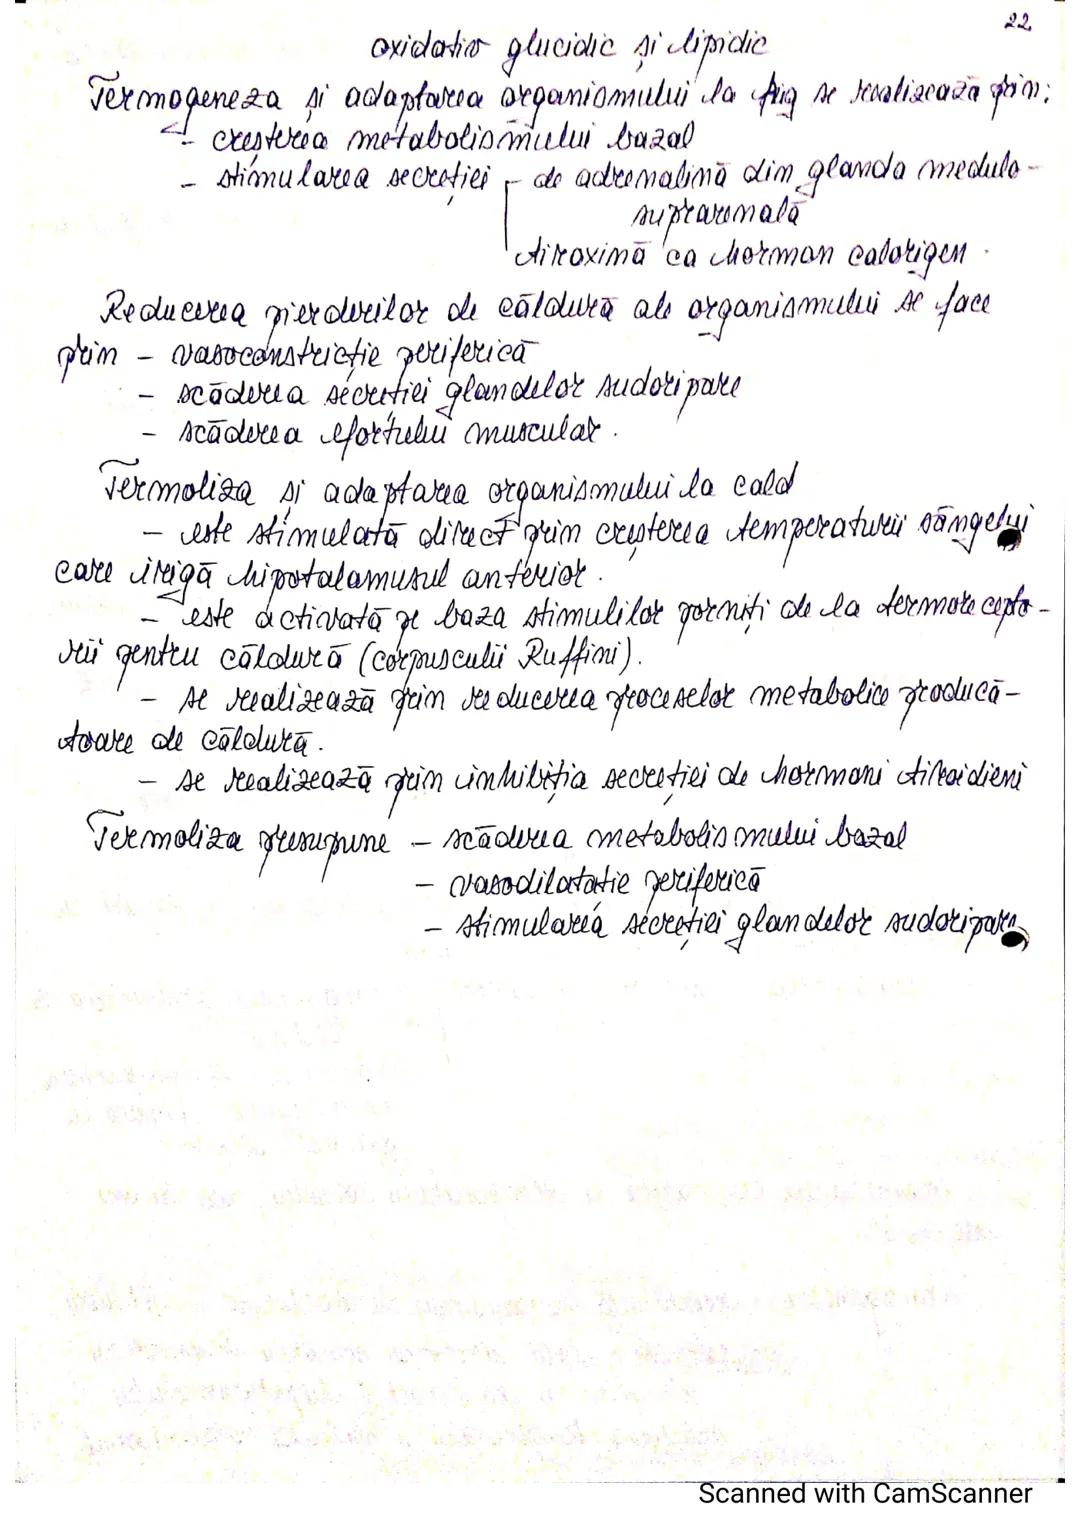 22
oxidativ glucidic și lipidic
Termogeneza și adaptarea organismului la frig se realizează prin:
- creșterea metabolismului bazal
- stimularea secreției - de adrenalină din glanda medulo-
suprarenală
tiroxină ca hormon calorigen.
Reducerea pierderilor de căldură ale organismului se face
prin - vasoconstricție periferică
- scăderea secreției glandelor sudoripare
- scăderea efortului muscular.
Termoliza și adaptarea organismului la cald
- este stimulată direct prin creșterea temperaturii sângelui
care irigă hipotalamusul anterior.
- este activată pe baza stimulilor porniți de la termorecepto-
rii pentru căldură (corpusculii Ruffini).
- se realizează prin reducerea proceselor metabolice producă-
toare de căldură.
- se realizează prin inhibiția secreției de hormoni tiroidieni
Termoliza presupune - scăderea metabolismului bazal
- vasodilatație periferică
- stimularea secreției glandelor sudoripare
Scanned with CamScanner